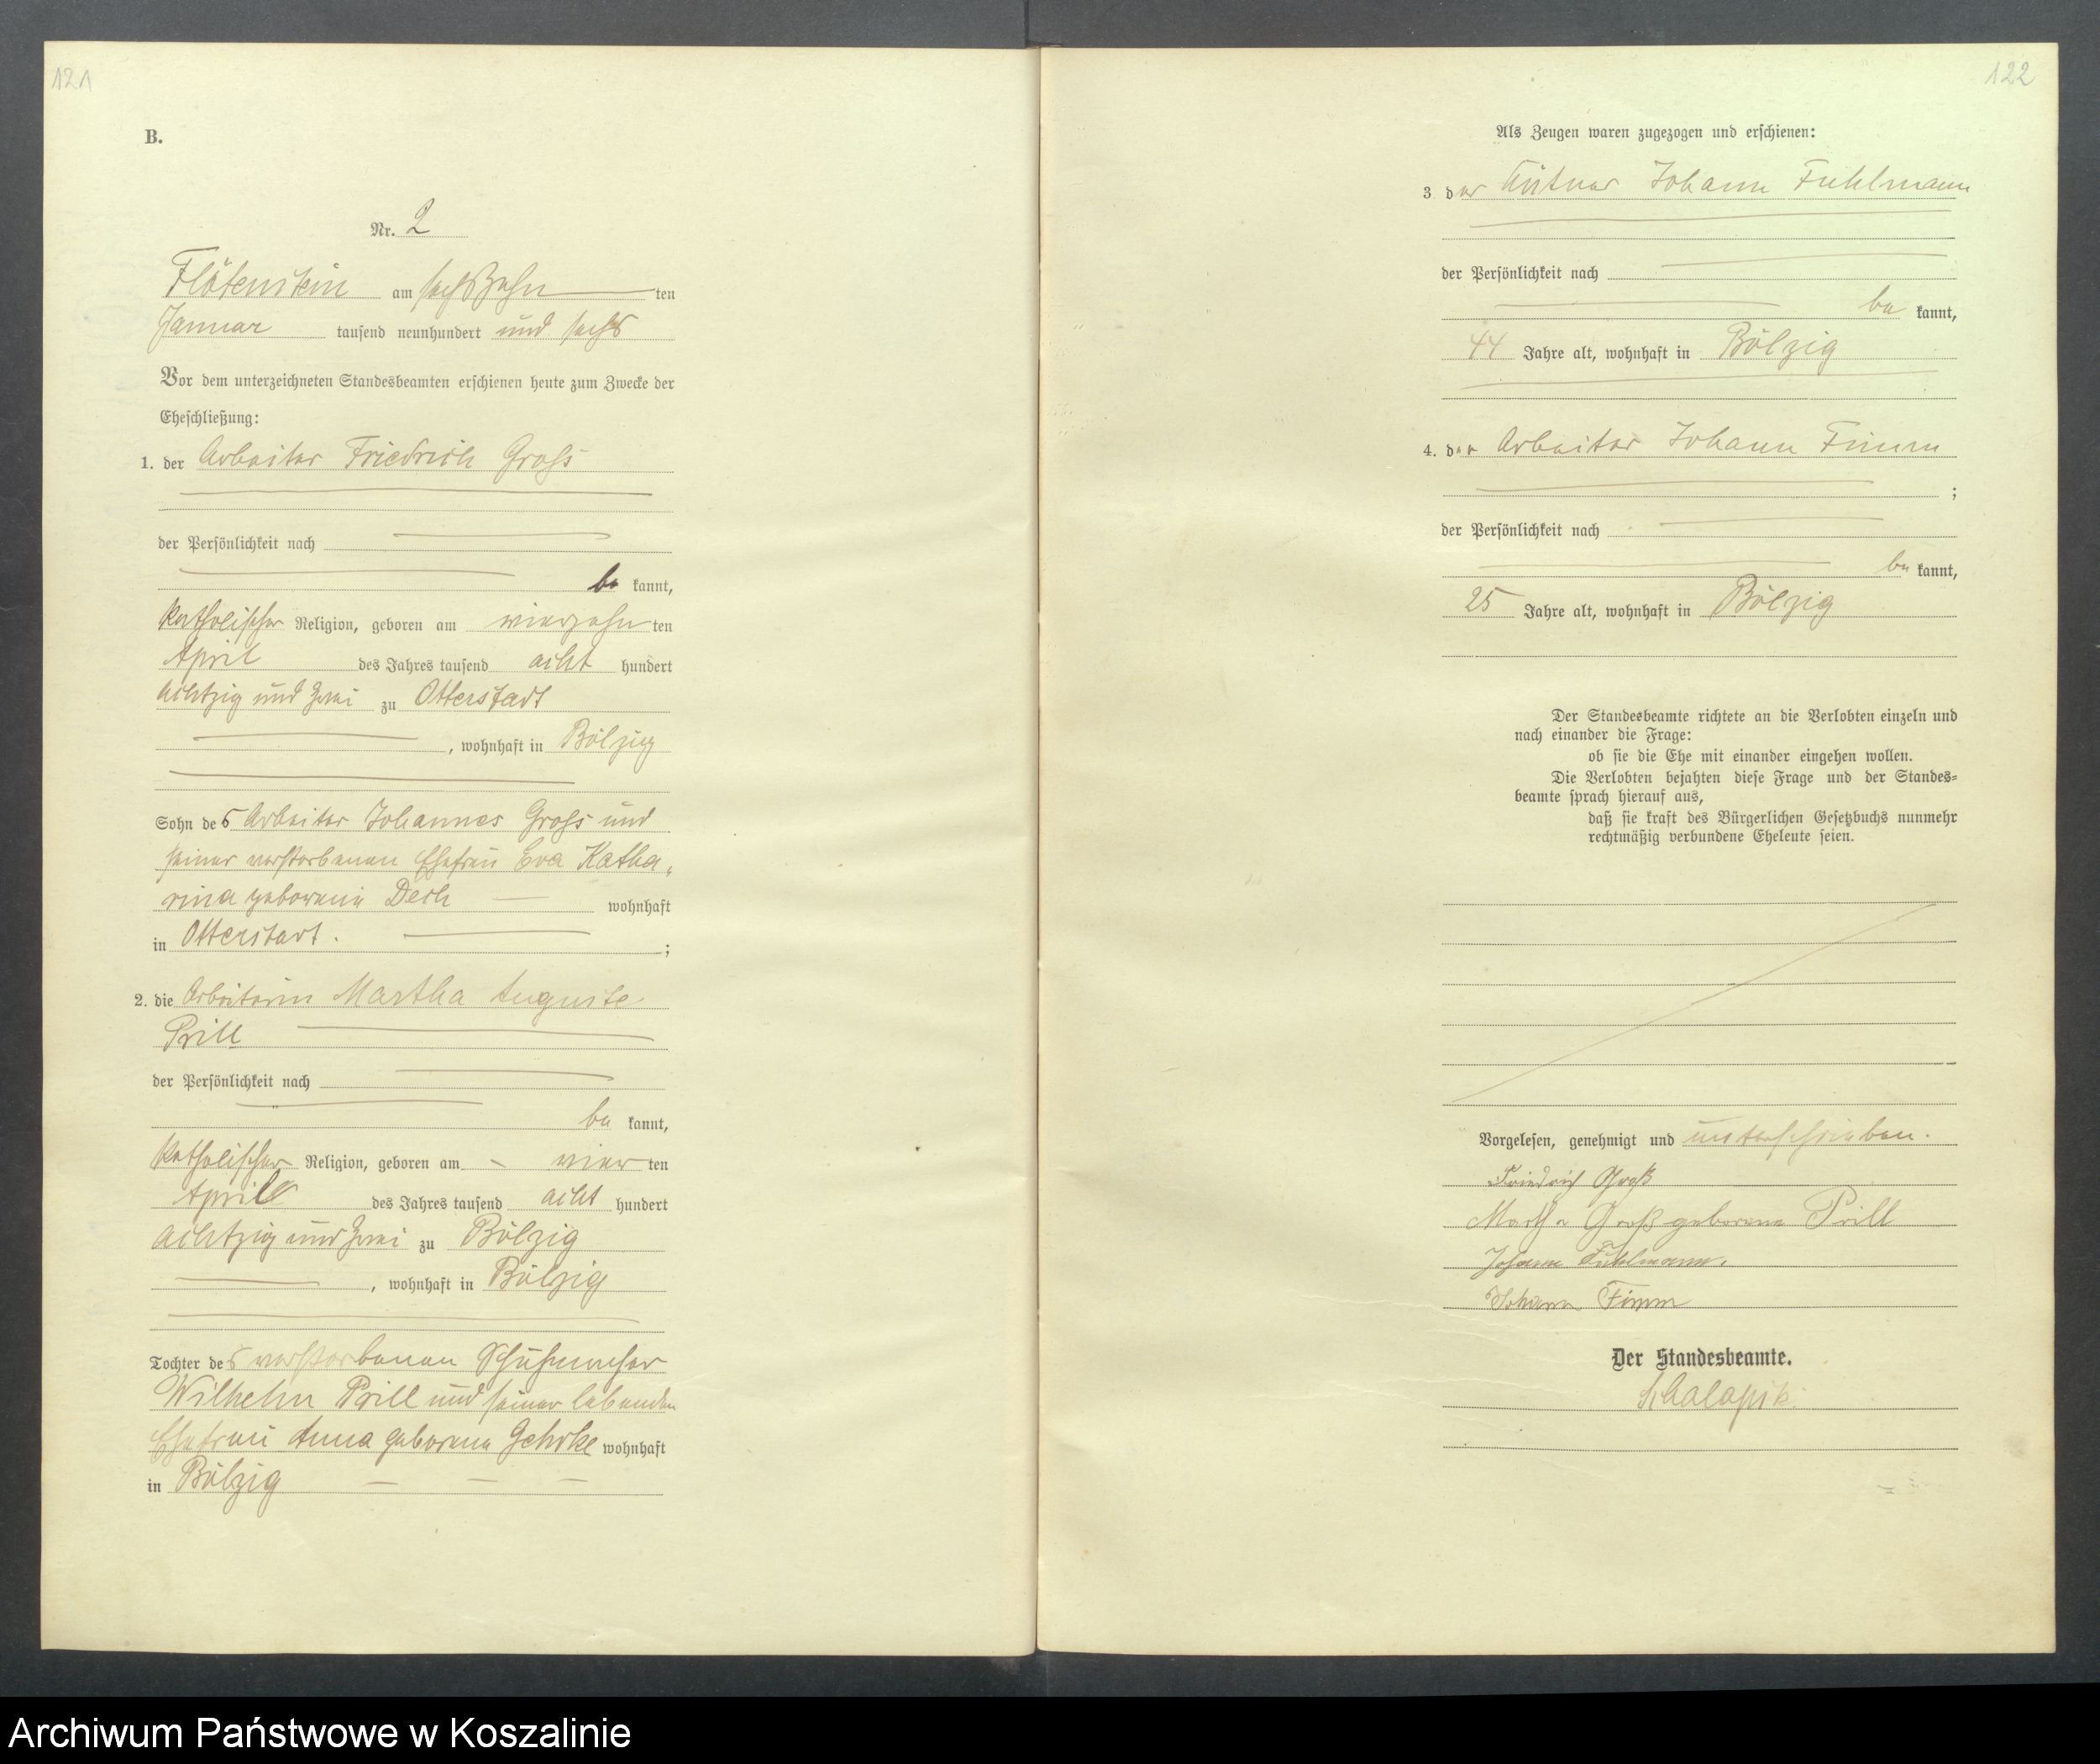 121
B.
Nr. 2
Flötenstein am sechszehn ten
Januar tausend neunhundert und sechs
Vor dem unterzeichneten Standesbeamten erschienen heute zum Zwecke der
Eheschließung:
1. der Arbeiter Friedrich Groß
der Persönlichkeit nach
be kannt,
katholischer Religion, geboren am vierzehn ten
April des Jahres tausend acht hundert
achtzig und zwei zu Otterstadt
, wohnhaft in Bölzig
Sohn des Arbeiter Johannes Groß und
seiner verstorbenen Ehefrau Eva Katha-
rina geborenen wohnhaft
in Otterstadt. ;
2. die Arbeiterin Martha Auguste
Prill
der Persönlichkeit nach
be kannt,
katholischer Religion, geboren am vier ten
April des Jahres tausend acht hundert
achtzig und zwei zu Bölzig
, wohnhaft in Bölzig
Tochter des verstorbenen Schuhmacher
Wilhelm Prill und seiner lebenden
Ehefrau Anna geborene Gehrke wohnhaft
in Bölzig
122
Als Zeugen waren zugezogen und erschienen:
3. der Johann Fuhlmann
der Persönlichkeit nach
be kannt,
44 Jahre alt, wohnhaft in Bölzig
4. der Arbeiter Johann Fimm
;
der Persönlichkeit nach
be kannt,
25 Jahre alt, wohnhaft in Bölzig
Der Standesbeamte richtete an die Verlobten einzeln und
nach einander die Frage:
ob sie die Ehe mit einander eingehen wollen.
Die Verlobten bejahten diese Frage und der Standes-
beamte sprach hierauf aus,
daß sie kraft des Bürgerlichen Gesetzbuchs nunmehr
rechtmäßig verbundene Eheleute seien.
Vorgelesen, genehmigt und unterschrieben.
Friedrich Groß
Martha Groß geborene Prill
Johann Fuhlmann.
Johann Fimm
Der Standesbeamte.
Archiwum Państwowe w Koszalinie